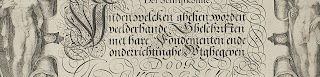 Inden welcken ghesien worden
veelderhande Gheschriften
met hare Fondementen ende
onderrichtinghe Wtghegeven
DOOR